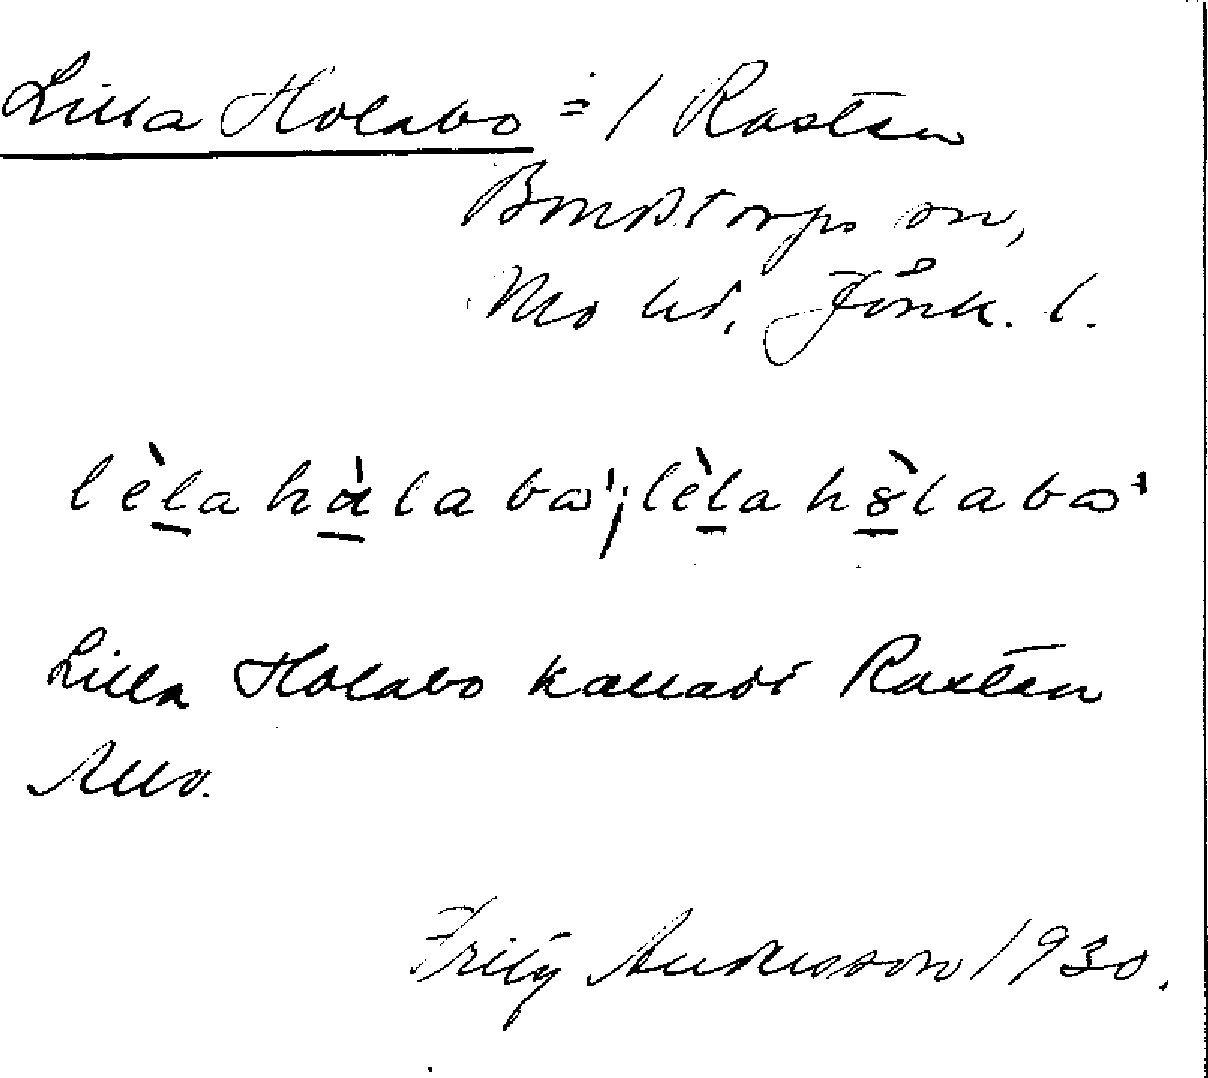 Lilla Holabo = 1 Rasten
Bondstorps sn,
Mo hd, Jönk. l.
lèla hàla bω'; lèla hòlabω'
Lilla Holabo Rasten
Fritz Andersson 1930.